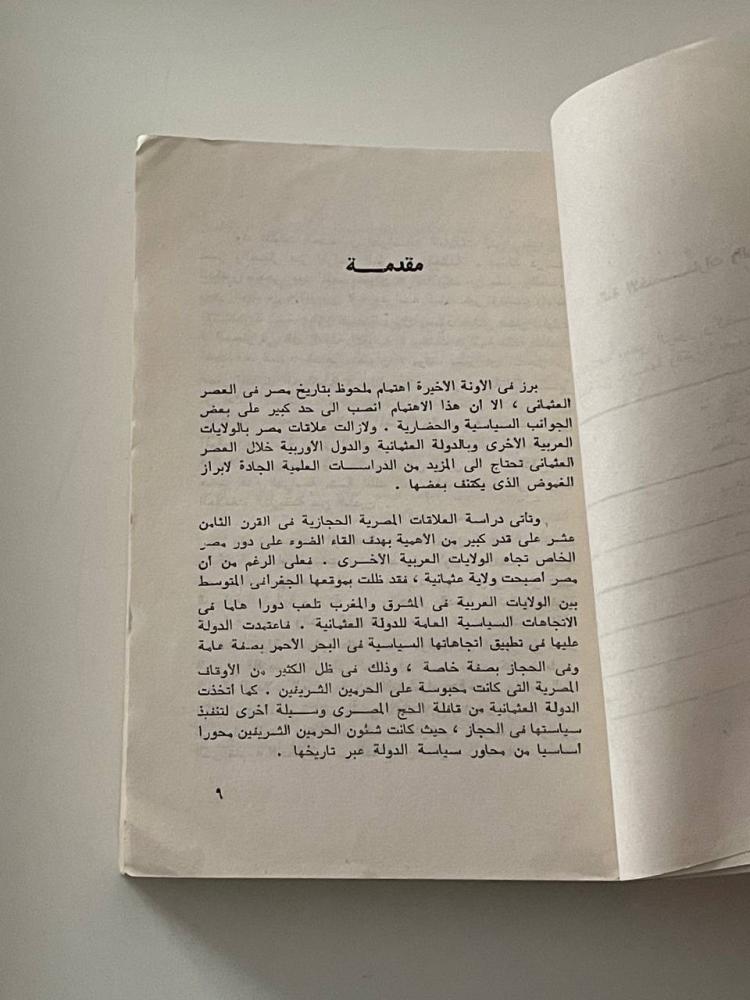 مقدمة
برز فى الآونة الاخيرة اهتمام ملحوظ بتاريخ مصر فى العصر
العثمانى ، الا ان هذا الاهتمام انصب الى حد كبير على بعض
الجوانب السياسية والحضارية . ولازالت علاقات مصر بالولايات
العربية الاخرى وبالدولة العثمانية والدول الأوربية خلال العصر
العثمانى تحتاج الى المزيد من الدراسات العلمية الجادة لابراز
الغموض الذى يكتنف بعضها .
وتأتى دراسة العلاقات المصرية الحجازية فى القرن الثامن
عشر على قدر كبير من الأهمية بهدف القاء الضوء على دور مصر
الخاص تجاه الولايات العربية الأخرى . فعلى الرغم من أن
مصر أصبحت ولاية عثمانية ، فقد ظلت بموقعها الجغرافى المتوسط
بين الولايات العربية فى المشرق والمغرب تلعب دورا هاما فى
الاتجاهات السياسية العامة للدولة العثمانية . فاعتمدت الدولة
عليها فى تطبيق اتجاهاتها السياسية فى البحر الأحمر بصفة عامة
وفى الحجاز بصفة خاصة ، وذلك فى ظل الكثير من الأوقاف
المصرية التى كانت محبوسة على الحرمين الشريفين . كما اتخذت
الدولة العثمانية من قافلة الحج المصرى وسيلة أخرى لتنفيذ
سياستها فى الحجاز ، حيث كانت شئون الحرمين الشريفين محورا
أساسيا من محاور سياسة الدولة عبر تاريخها .
٩